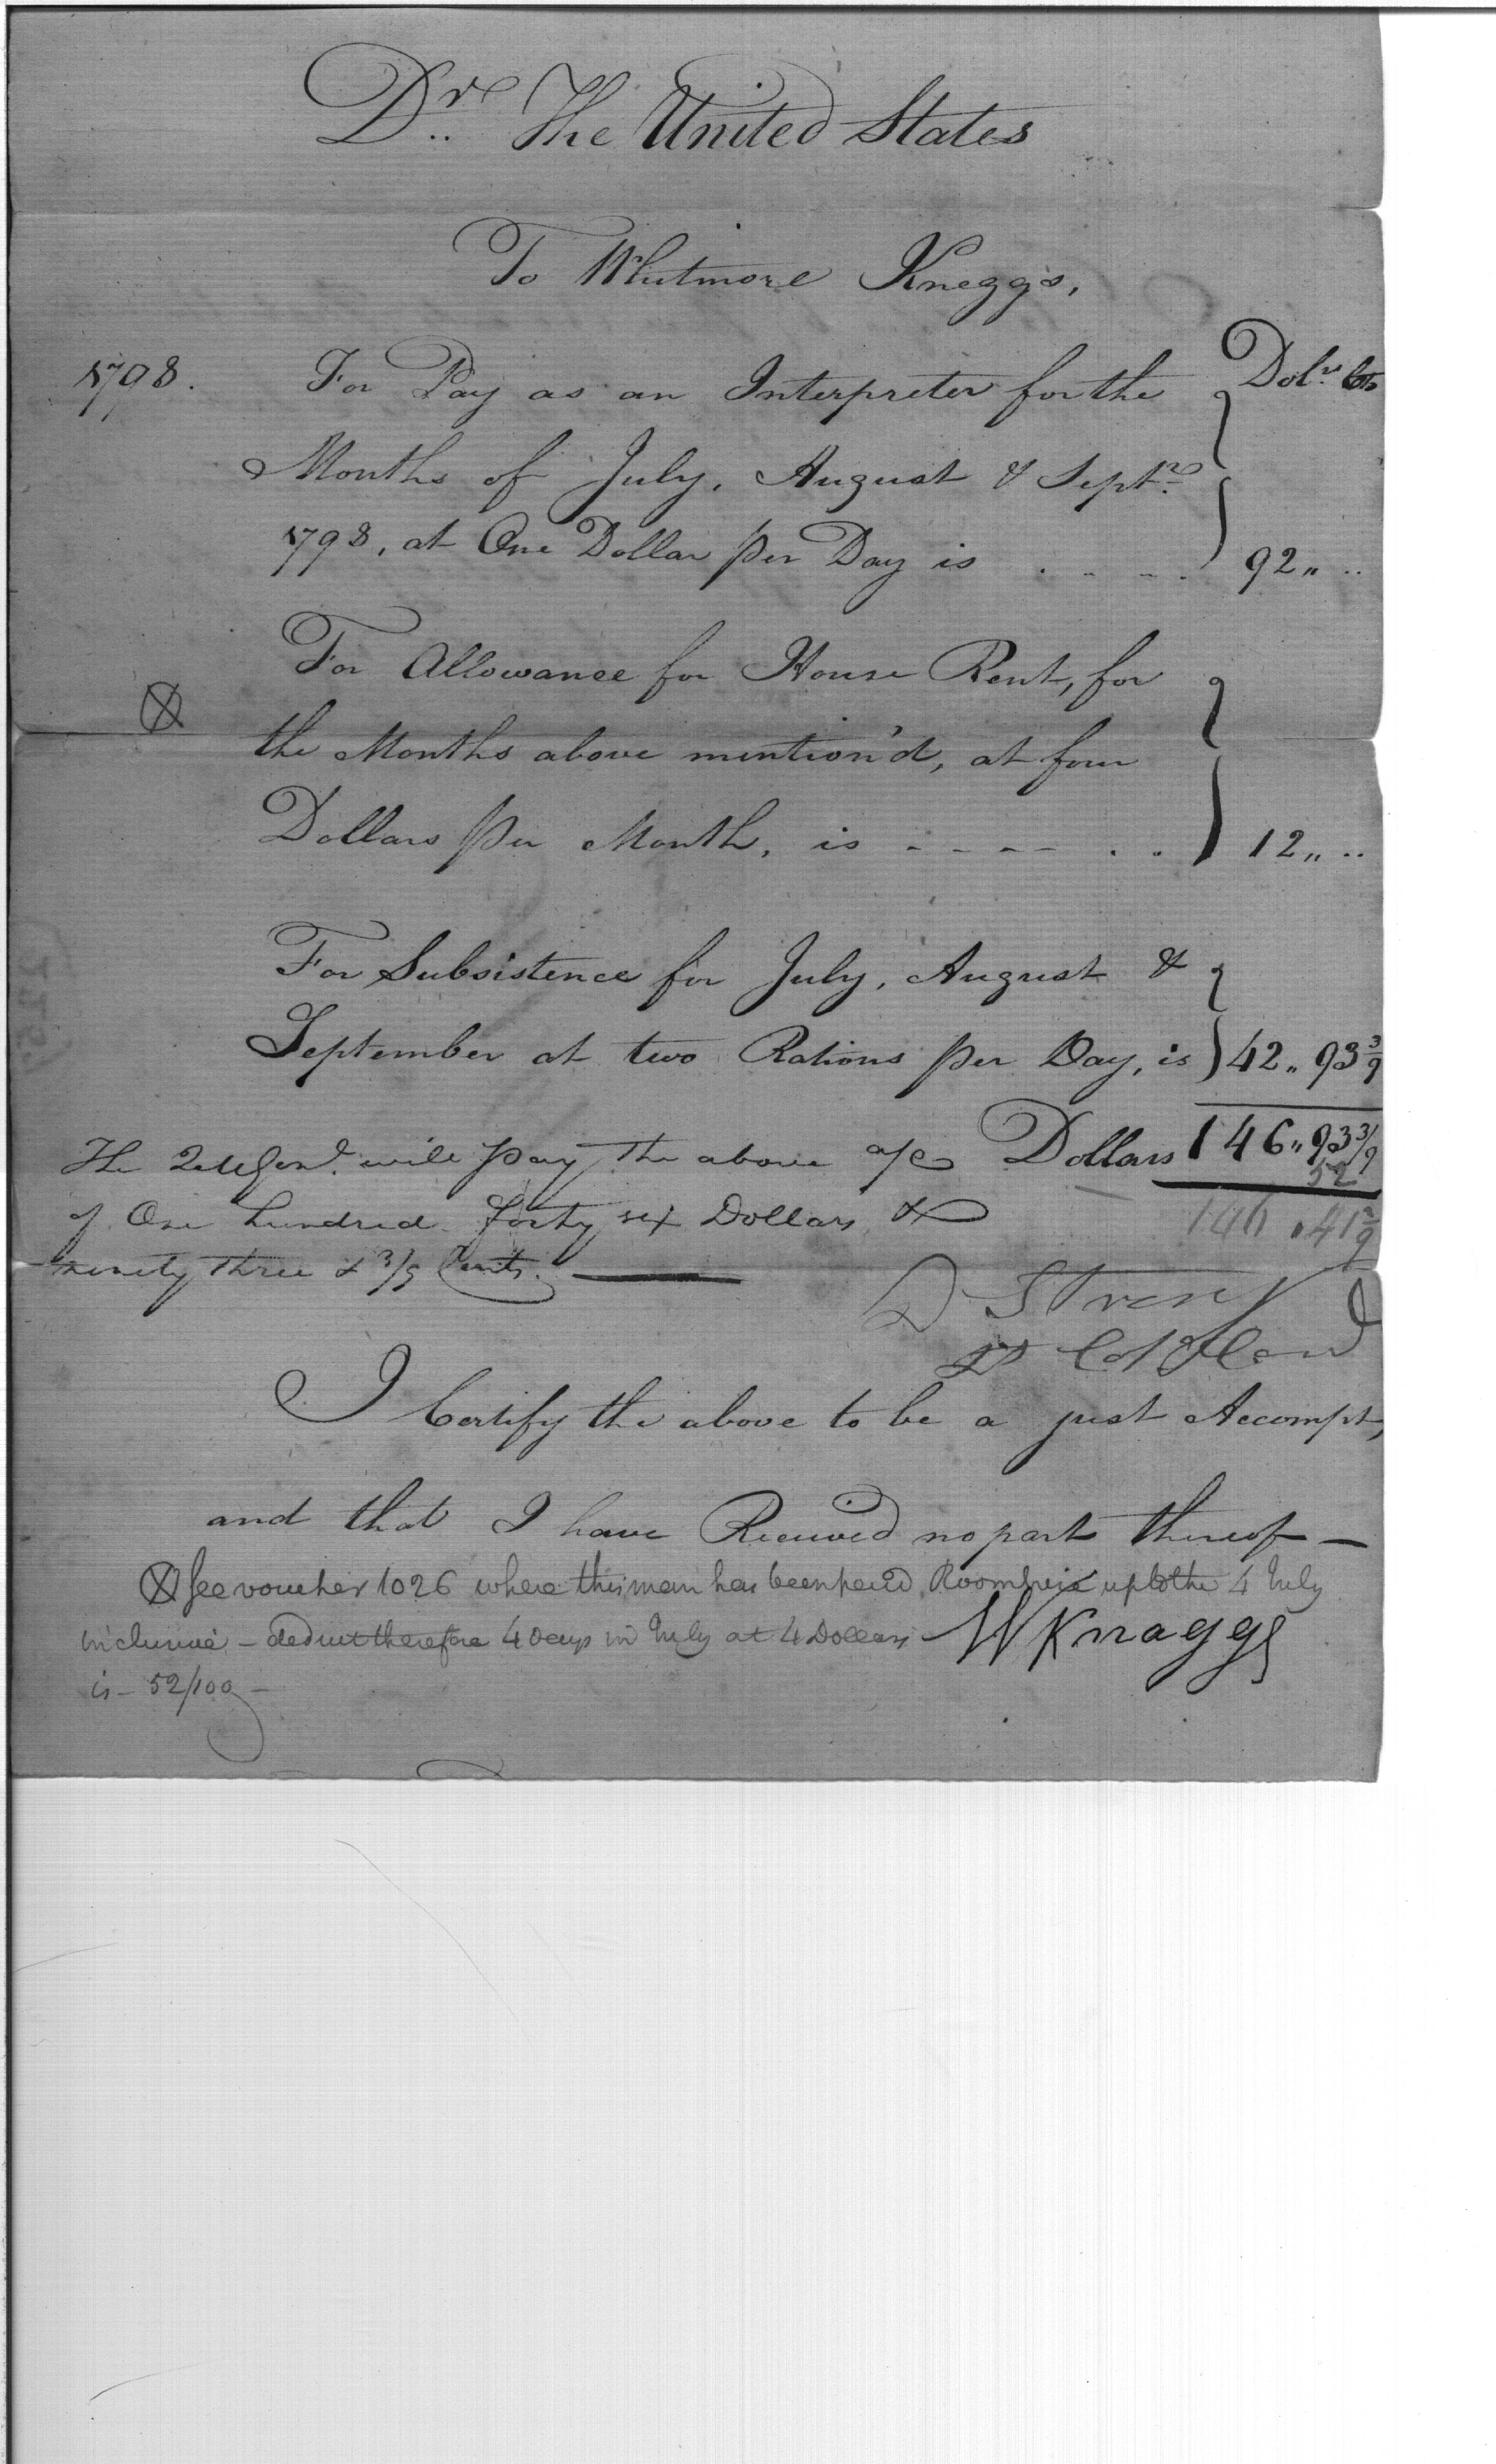 Dr. The United States
To Whitmore Knaggs,
1798. For Pay as an Interpreter for the Dolrs Cts
Months of July, August & Septr.
1798, at One Dollar per Day is . . . . 92 " ..
For Allowance for House Rent, for
⊗ the Months above mention'd, at four
Dollars per Month, is - - - - . . 12 " ..
For Subsistence for July, August &
September at two Rations per Day, is 42 " 93 3/9
Dollars 146 " 93 3/9
52
146 " 41 3/9
The will pay the above a/c
of One hundred forty six Dollars &
ninety three & 3/9 Cents.
D Strong
Lt Col Comd
I Certify the above to be a just Accompt,
and that I have Received no part thereof —
⊗ See voucher 1026 where this man has been paid Room hire up to the 4 July
inclusive – deduct therefore 4 Days in July at 4 Dollars
is – 52/100 –
W Knaggs